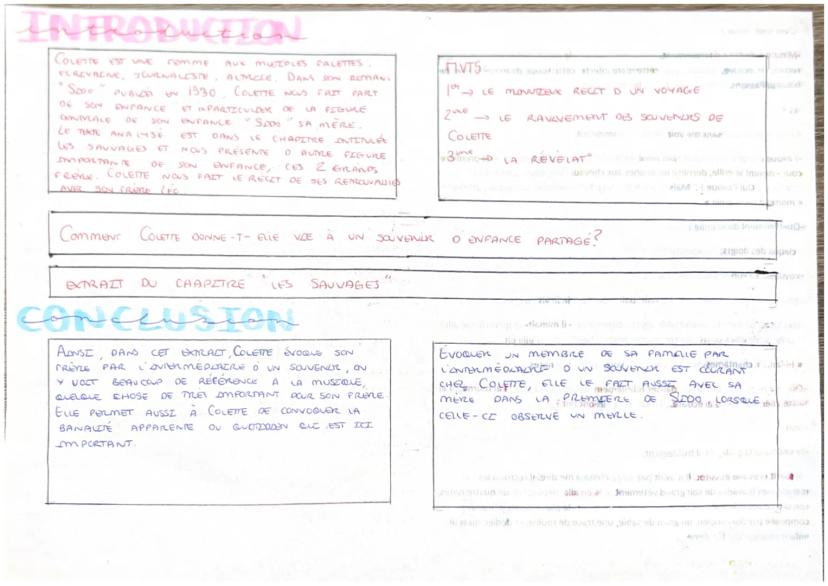 INTRODUCTION
introduction
COLETTE EST UNE FEMME AUX MULTIPLES PALETTES.
ECRIVAINE, JOURNALISTE, ACTRICE. DANS SON ROMAN
"SIDO" PUBLIER EN 1930. COLETTE NOUS FAIT PART
DE SON ENFANCE ET PARTICULIER DE LA FIGURE
CENTRALE DE SON ENFANCE "SIDO" SA MÈRE.
LE TEXTE ANALYSÉ EST DANS LE CHAPITRE INTITULÉE
LES SAUVAGES ET NOUS PRÉSENTE D AUTRE FIGURE
IMPORTANTE DE SON ENFANCE, CES 2 GRANDS
FRÈRE. COLETTE NOUS FAIT LE RÉCIT DE SES RETROUVAILLES
AVEC SON FRÈRE LÉO.
MVTS
1er → LE RECIT D UN VOYAGE
2eme → LE RAVIVEMENT DES SOUVENIRS DE
COLETTE
3eme → LA RÉVÉLAT°
COMMENT COLETTE DONNE-T-ELLE VIE À UN SOUVENIR D ENFANCE PARTAGÉ?
EXTRAIT DU CHAPITRE "LES SAUVAGES"
CONCLUSION
conclusion
AINSI, DANS CET EXTRAIT, COLETTE ÉVOQUE SON
FRÈRE PAR L'INTERMÉDIAIRE D UN SOUVENIR, ON
Y VOIT BEAUCOUP DE RÉFÉRENCE A LA MUSIQUE,
QUELQUE CHOSE DE TRÈS IMPORTANT POUR SON FRÈRE.
ELLE PERMET AUSSI À COLETTE DE CONVOQUER LA
BANALITÉ APPARENTE DU QUOTIDIEN QUI EST ICI
IMPORTANT.
ÉVOQUER UN MEMBRE DE SA FAMILLE PAR
L'INTERMÉDIAIRE D UN SOUVENIR EST COURANT
CHEZ COLETTE, ELLE LE FAIT AUSSI AVEC SA
MÈRE DANS LA PREMIÈRE DE SIDO, LORSQUE
CELLE-CI OBSERVE UN MERLE.